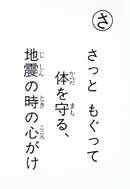 さ
さっと もぐって
体を守る、
地震の時の心がけ